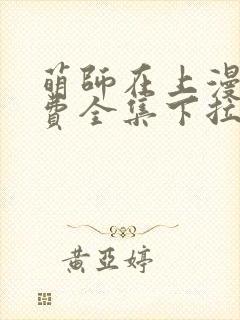 萌師在上漫
費全集下拉
黃亞婷